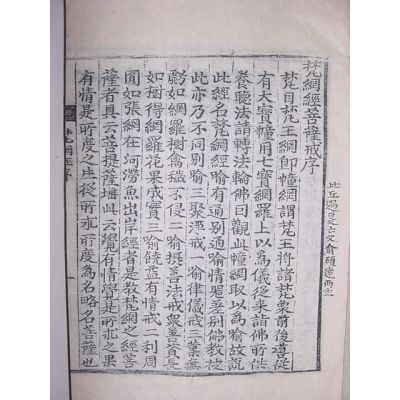 梵網經菩薩戒序
比丘
梵目梵王網卽幢網謂梵王將諸梵衆前後從
有大寶幢用七寶網羅上以爲儀從来詣佛所供
養聽法請轉法輪佛曰觀此幢網取以爲喻故說
此經名梵網經喻有通別通喻情器差別佛教被
此亦乃不同別喻三聚淨戒一喻律儀戒三業無
虧如網羅樹禽獸不侵二喻攝善法戒衆善資長
如樹得網羅花果成實三喻饒益有情戒二利周
圓如張網在河澇魚出岸經者是教梵網之經菩
薩者具云菩提薩埵此云覺有情覺是所求之果
有情是所度之生從所求所度爲名略名菩薩也
梵網經序